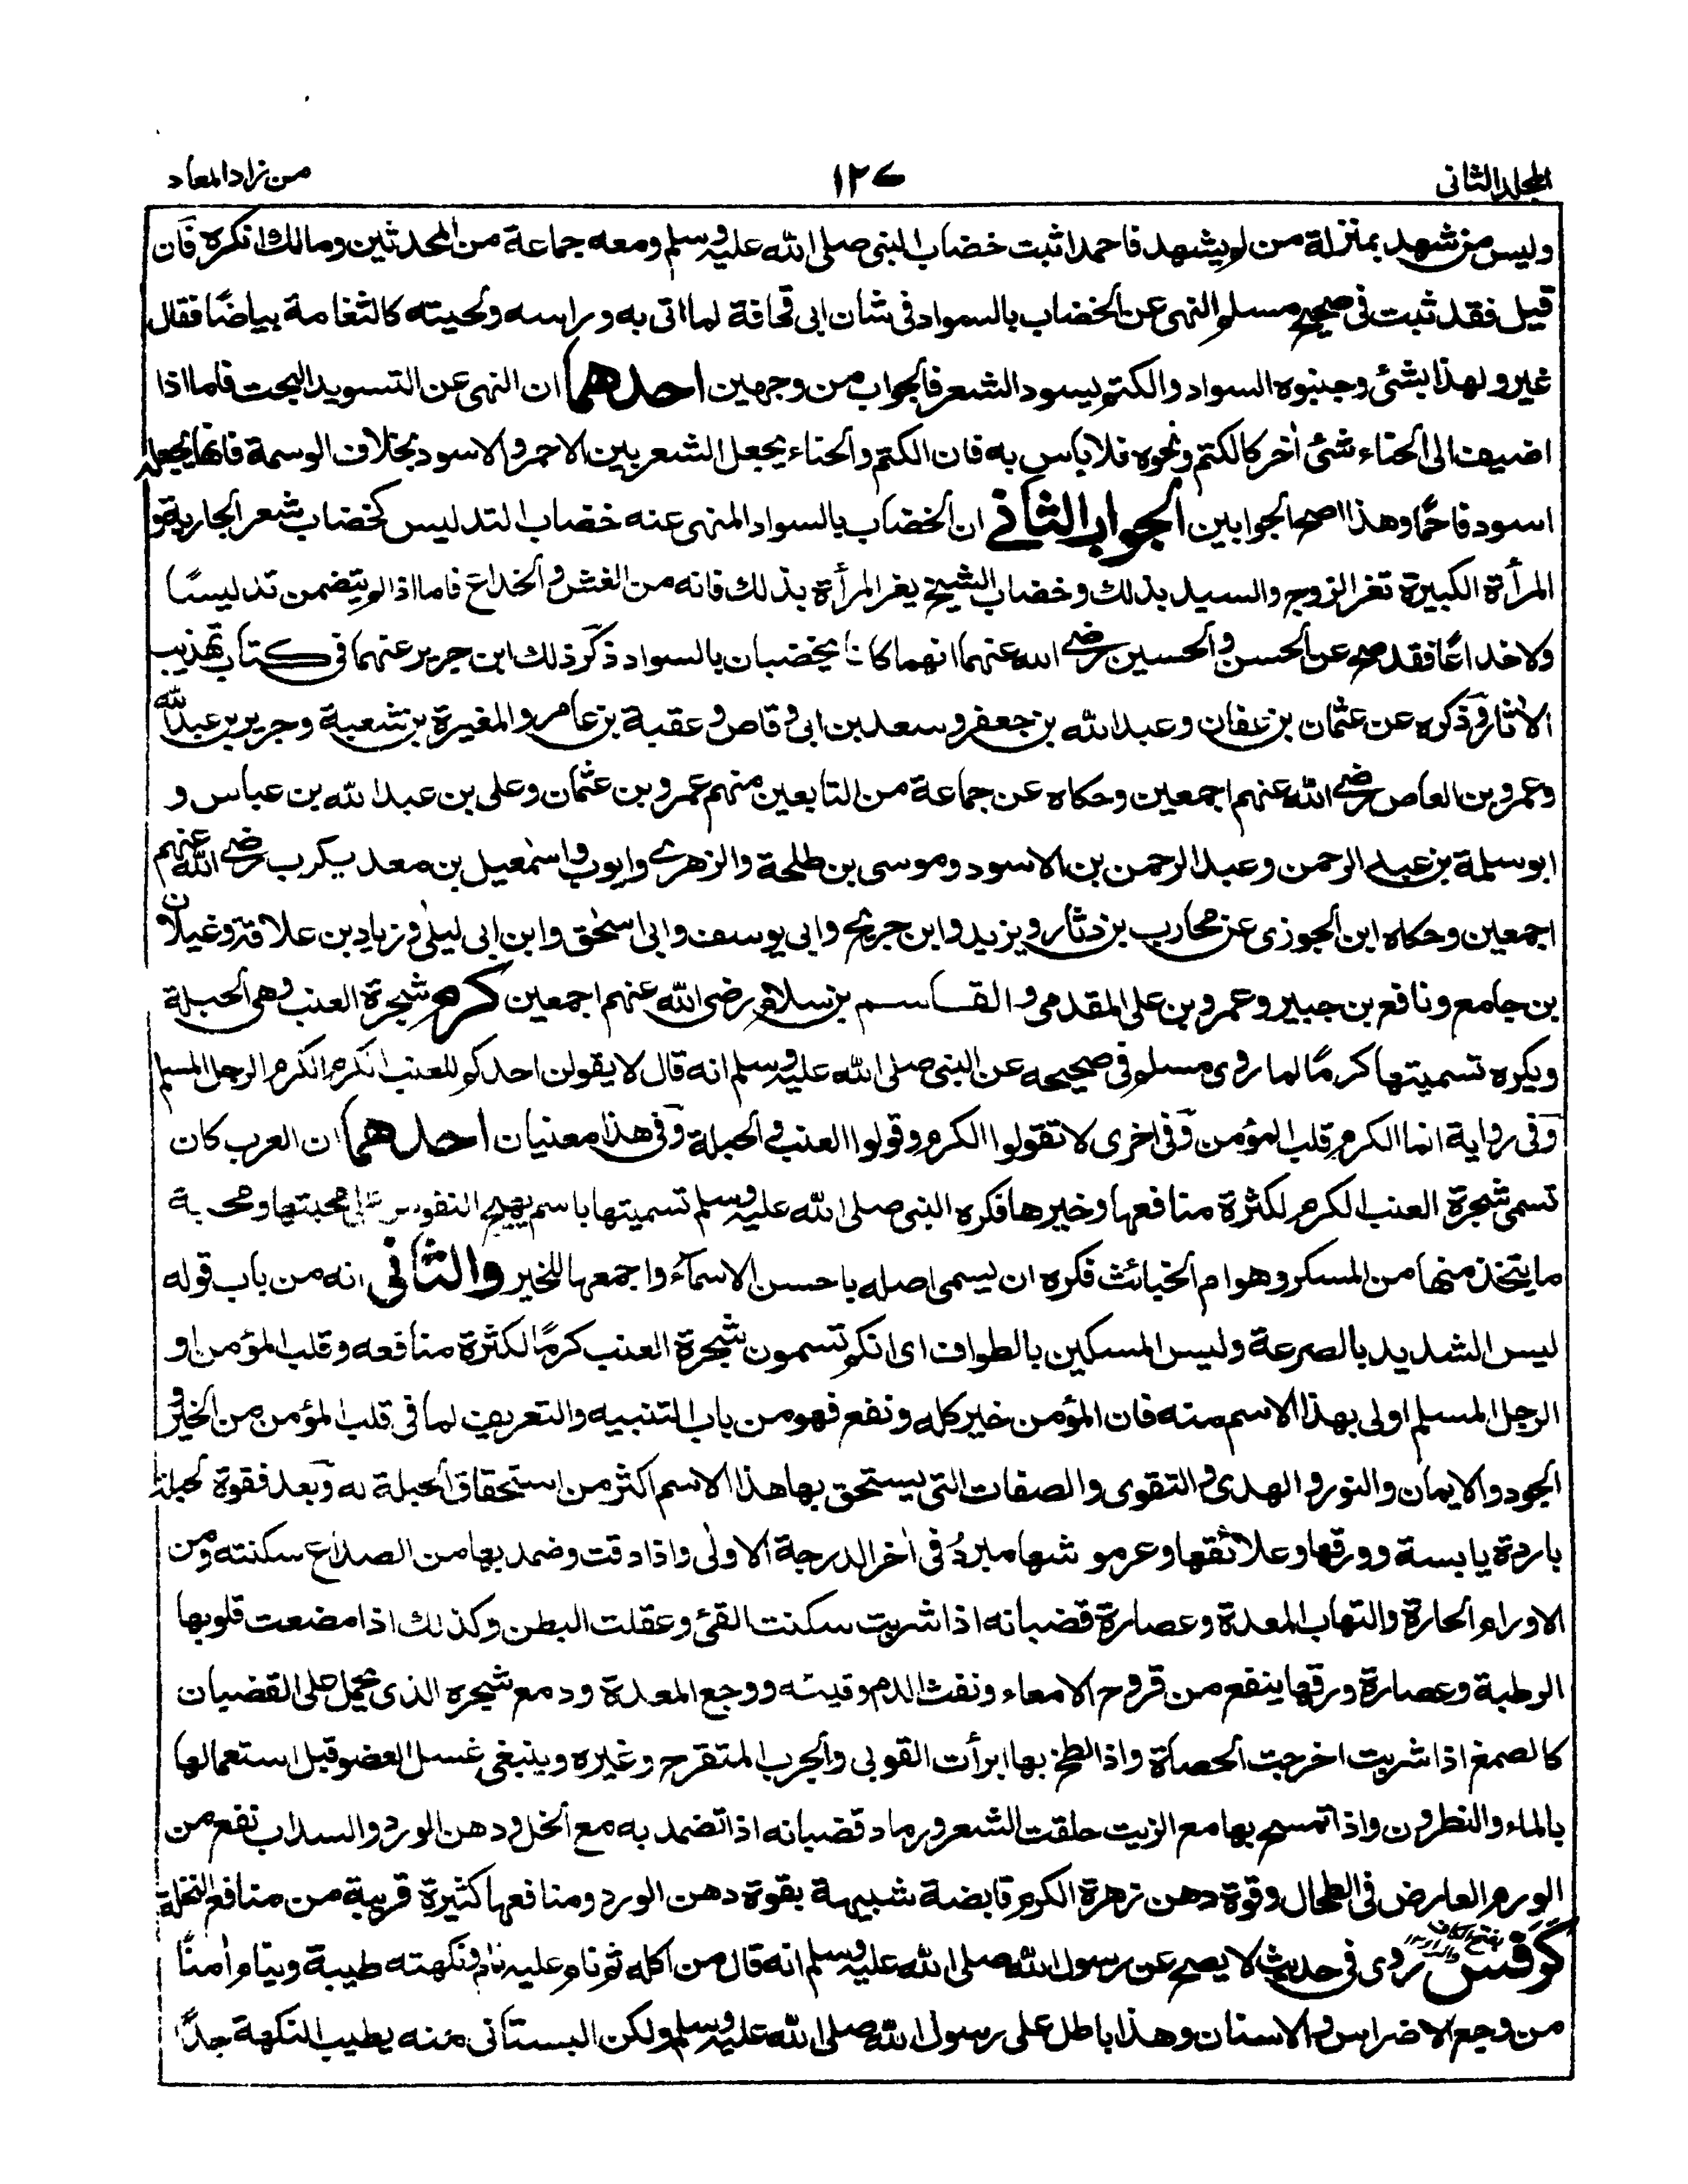 المجلد الثانی
۱۲۷
من زاد المعاد
وليس من شهد بمنزلة من لم يشهد فاحمد اثبت خضاب النبی صلی الله عليه وسلم ومعه جماعة من المحدثين ومالك انكره فان
قيل فقد ثبت فی صحيح مسلم النهی عن الخضاب بالسواد فی شان ابی قحافة لما اتی به وراسه ولحيته كالثغامة بياضًا فقال
غيروا هذا بشئ وجنبوه السواد والكتم يسود الشعر فالجواب من وجهين احدهما ان النهی عن التسويد البحت فاما اذا
اضيف الی الحناء شئ اٰخر كالكتم ونحوه فلا باس به فان الكتم والحناء يجعل الشعر بين الاحمر والاسود بخلاف الوسمة فانها يجعله
اسود فاحمًا وهذا اصح الجوابين الجواب الثانی ان الخضاب بالسواد المنهی عنه خضاب التدليس كخضاب شعر الجارية و
المرأة الكبيرة تغر الزوج والسيد بذلك وخضاب الشيخ يغر المرأة بذلك فانه من الغش والخداع فاما اذا لم يتضمن تدليسًا
ولا خداعًا فقد صح عن الحسن والحسين رضی الله عنهما انهما كانا يخضبان بالسواد ذكر ذلك ابن جرير عنهما فی كتاب تهذيب
الاٰثار وذكره عن عثمان بن عفان وعبد الله بن جعفر وسعد بن ابی وقاص وعقبة بن عامر والمغيرة بن شعبة وجرير بن عبد الله
وعمرو بن العاص رضی الله عنهم اجمعين وحكاه عن جماعة من التابعين منهم عمرو بن عثمان وعلی بن عبد الله بن عباس و
ابو سلمة بن عبد الرحمن وعبد الرحمن بن الاسود وموسی بن طلحة والزهری وايوب واسمٰعيل بن معد يكرب رضی الله عنهم
اجمعين وحكاه ابن الجوزی عن محارب بن دثار ويزيد وابن جريج وابی يوسف وابی اسحٰق وابن ابی ليلیٰ وزياد بن علاقة وغيلان
بن جامع ونافع بن جبير وعمرو بن علی المقدمی والقاسم بن سلام رضی الله عنهم اجمعين كرم شجرة العنب وهی الحبلة
ويكره تسميتها كرمًا لما روی مسلم فی صحيحه عن النبی صلی الله عليه وسلم انه قال لا يقولن احدكم للعنب الكرم الكرم الرجل المسلم
وفی رواية انما الكرم قلب المؤمن وفی اخری لا تقولوا الكرم وقولوا العنب والحبلة وفی هذا معنيان احدهما ان العرب كان
تسمی شجرة العنب الكرم لكثرة منافعها وخيرها فكره النبی صلی الله عليه وسلم تسميتها باسم يهيج النفوس علی محبتها ومحبة
ما يتخذ منها من المسكر وهو ام الخبائث فكره ان يسمی اصله باحسن الاسمآء واجمعها للخير والثانی انه من باب قوله
ليس الشديد بالصرعة وليس المسكين بالطواف ای انكم تسمون شجرة العنب كرمًا لكثرة منافعه وقلب المؤمن او
الرجل المسلم اولی بهذا الاسم منه فان المؤمن خير كله ونفع فهو من باب التنبيه والتعريف لما فی قلب المؤمن من الخير و
الجود والايمان والنور والهدی والتقوی والصفات التی يستحق بها هذا الاسم اكثر من استحقاق الحبلة له وبعد فقوة الحبلة
باردة يابسة وورقها وعلائقها وعرموشها مبرد فی اٰخر الدرجة الاولٰی واذا دقت وضمد بها من الصداع سكنته ومن
الاورام الحارة والتهاب المعدة وعصارة قضبانه اذا شربت سكنت القئ وعقلت البطن وكذلك اذا مضغت قلوبها
الرطبة وعصارة ورقها ينفع من قروح الامعاء ونفث الدم وقيئه ووجع المعدة ودمع شجره الذی يحمل علی القضبان
كالصمغ اذا شربت اخرجت الحصاة واذا لطخ بها ابرأت القوبی والجرب المتقرح وغيره وينبغی غسل العضو قبل استعمالها
بالماء والنطرون واذا تمسح بها مع الزيت حلقت الشعر ورماد قضبانه اذا تضمد به مع الخل ودهن الورد والسداب نفع من
الورم العارض فی الطحال وقوة دهن زهرة الكرم قابضة شبيهة بقوة دهن الورد ومنافعها كثيرة قريبة من منافع النخلة
كَرَفْس بفتح الكاف والراء روی فی حديث لا يصح عن رسول الله صلی الله عليه وسلم انه قال من اكله ثم نام عليه نام ونكهته طيبة وينام اٰمنًا
من وجع الاضراس والاسنان وهذا باطل علی رسول الله صلی الله عليه وسلم ولكن البستانی منه يطيب النكهة جدًا